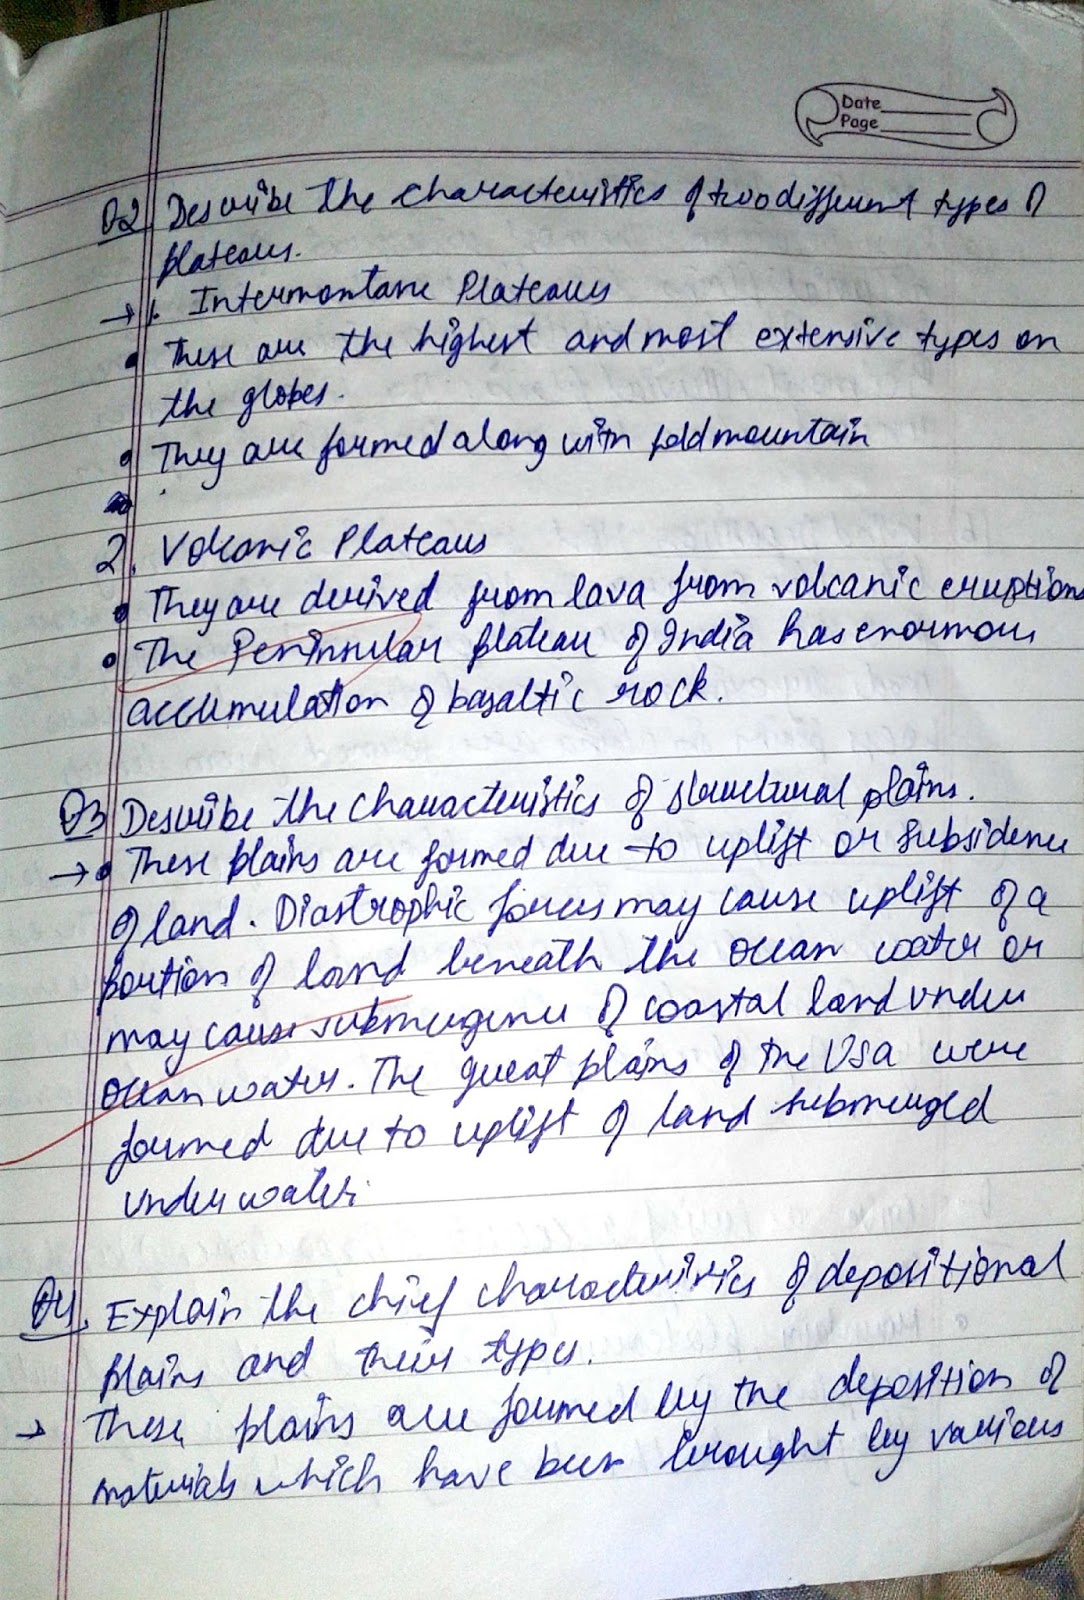 Date
Page
Q2 Describe the characteristics of two different types of
plateaus.
→ 1. Intermontane Plateaus
• These are the highest and most extensive types on
the globes.
• They are formed along with fold mountain
2. Volcanic Plateaus
• They are derived from lava from volcanic eruptions
• The Peninnular plateau of India has enormous
accumulation of basaltic rock.
Q3 Describe the characteristics of structural plains.
→ • These plains are formed due to uplift or subsidence
of land. Diastrophic forces may cause uplift of a
portion of land beneath the ocean water or
may cause submergence of coastal land under
ocean water. The great plains of the USA were
formed due to uplift of land submerged
under water.
Q4. Explain the chief characteristics of depositional
plains and their types.
→ These plains are formed by the deposition of
materials which have been brought by various